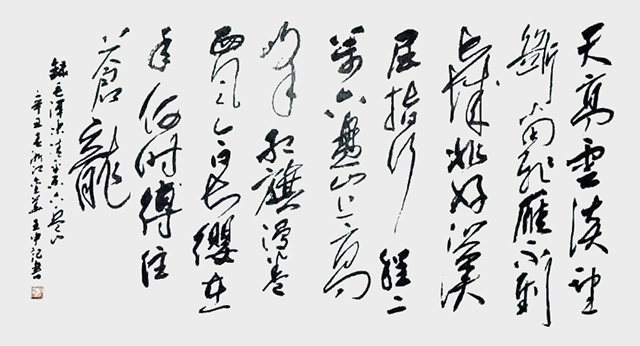 天高雲淡望
斷南飛雁不到
長城非好漢
屈指行程二
萬六盤山上高
峰紅旗漫卷
西風今日長纓在
手何時縛住
蒼龍
錄毛澤東清平樂六盤山
辛丑春浙江金華王中書